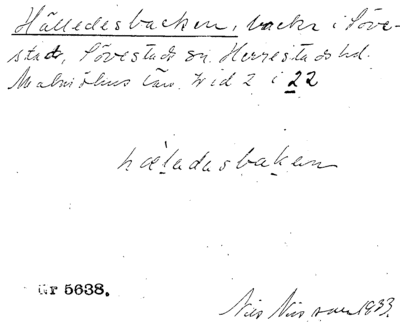 Hälledesbacken, backe i Söve-
stad, Sövestads sn. Herrestads hd.
Malmöhus län. Wid 2 i 22
hæladasbakan
Gr 5638.
Nils Nilsson 1933.